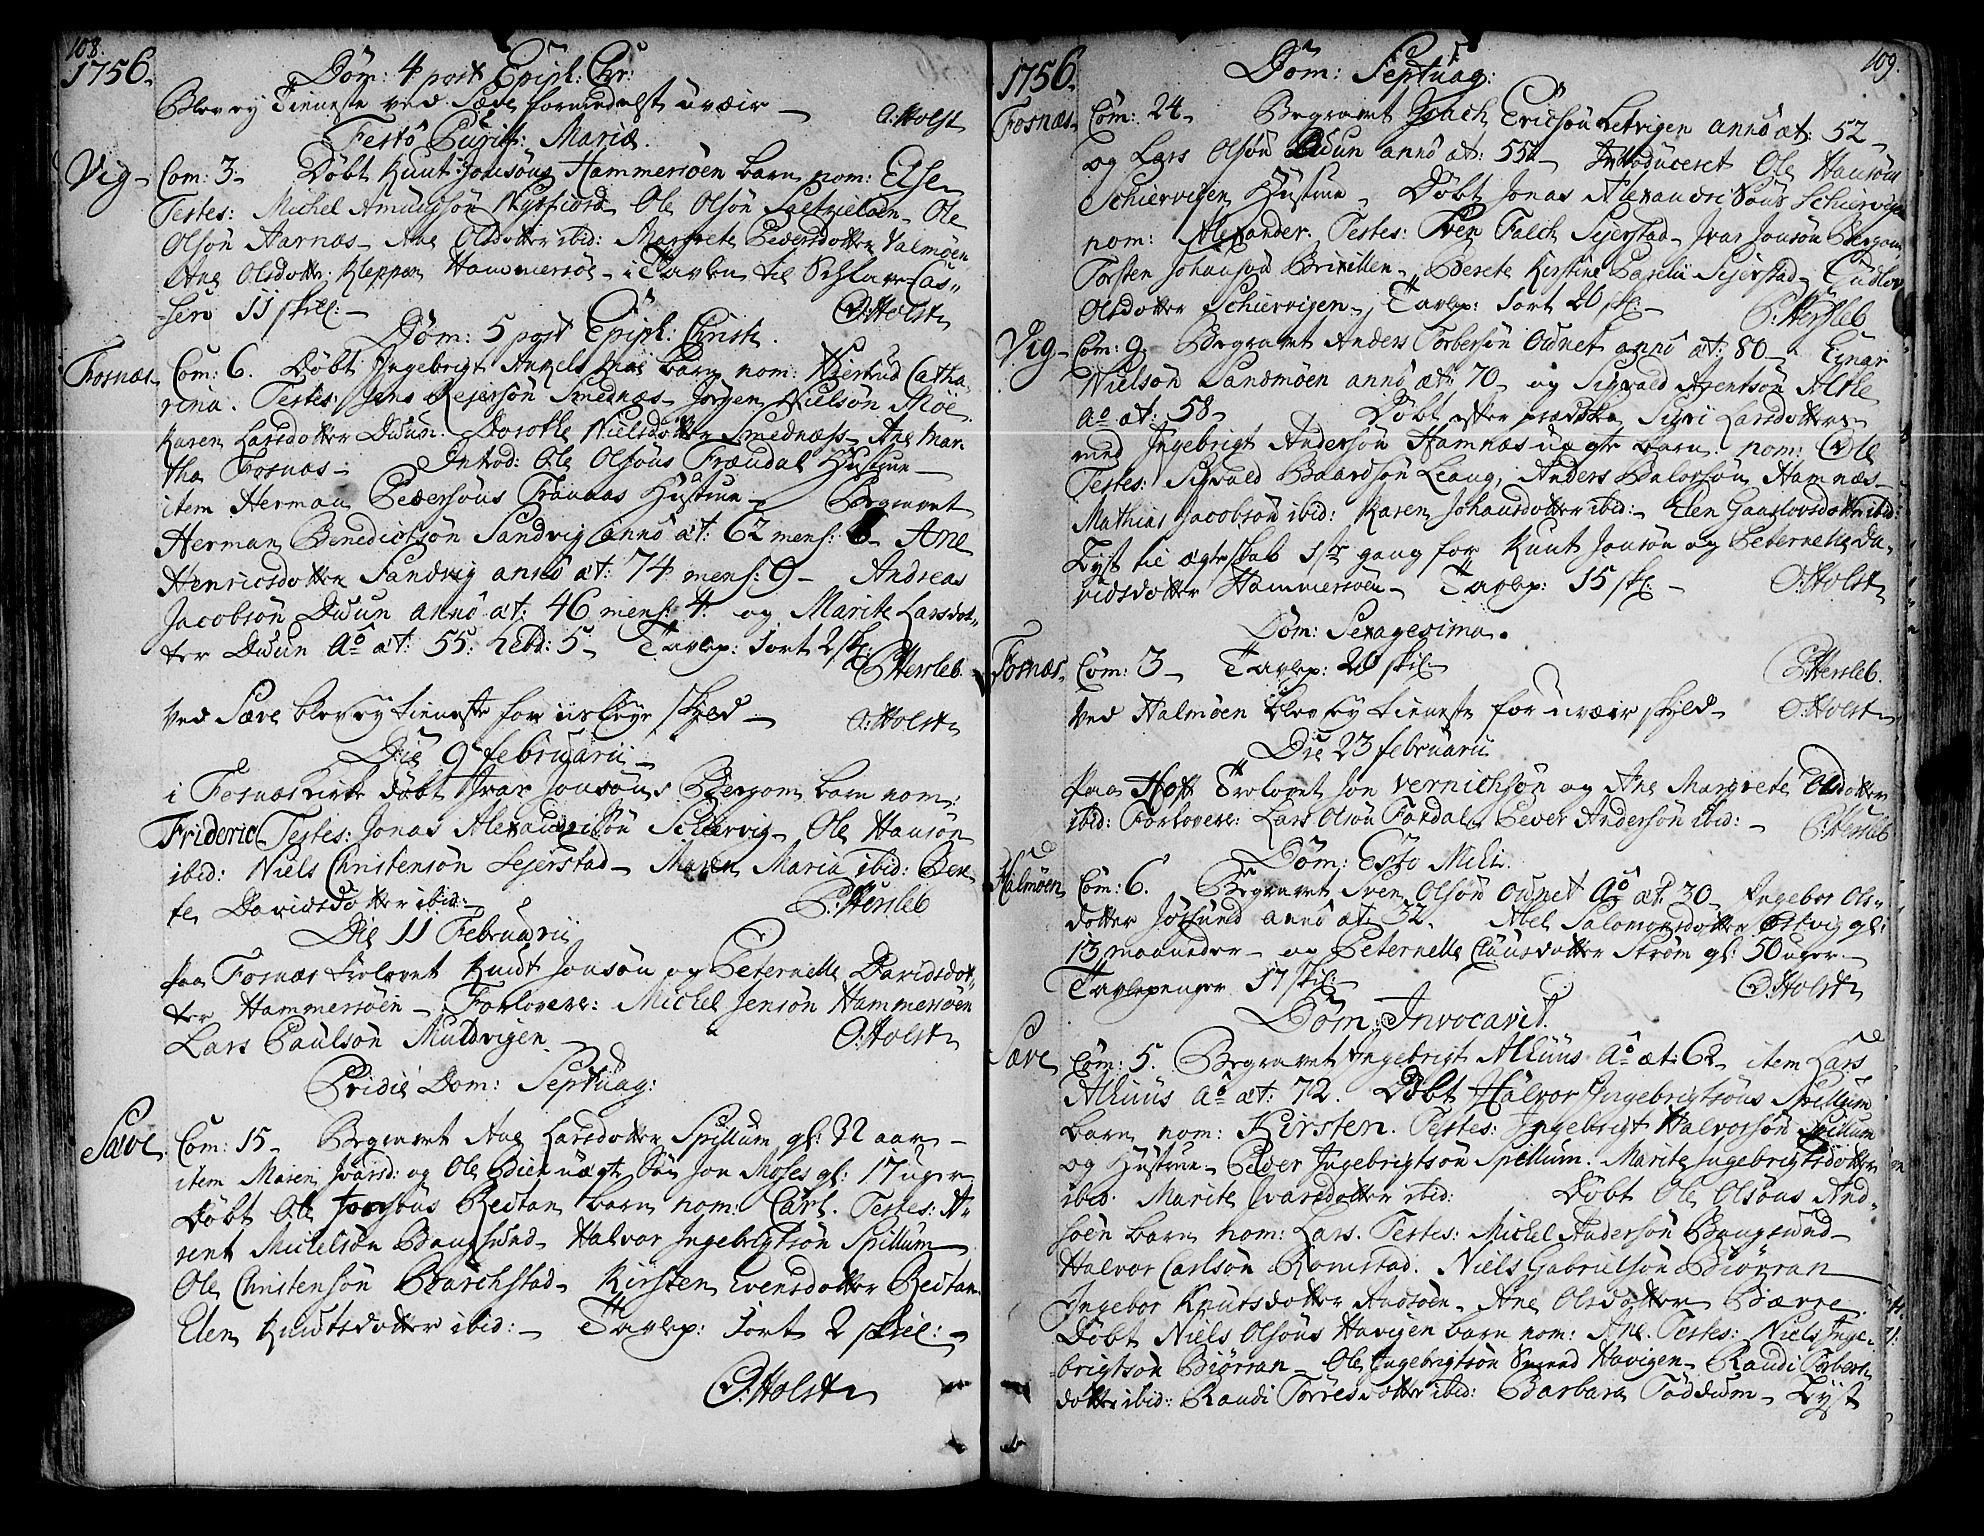 108.
1756.
Dom: 4 post Epiph: Chr:
Blev ey Tieneste ved Sæve formedelst uvæir
O: Holst
Festo Purif: Mariæ.
Vig Com: 3 Døbt Knut Jonsøns Hammersøen barn nom: Else
Testes: Michel Amundsøn Ole Olsøn Ole
Olsøn Aarnæs Ane Olsdotter ibid: Margrete Pedersdotter Valmøen
Ane Olsdotter Kleppen Hammersøe i Tavlen til Sclave Cas-
sen 11 skill:
O: Holst
Dom: 5 post Epiph: Christi.
Fosnæs Com: 6. Døbt Ingebrigt barn nom: Giertrud Catha-
rina. Testes: Jens Rejersøn Smednæs Jørgen Nielsøn Moe
Karen Larsdotter Duun. Dorothe Nielsdotter Smednæss Ane Mar-
tha Fosnæs Introd: Ole Olsøns Hustrue
item Herman Pedersøns Hustrue Begravet
Herman Benedictsøn Sandvig anno æt: 62 mens: 6 Ane
Henricsdotter Sandvig anno æt: 74 mens: 9 Andreas
Jacobsøn Duun anno æt: 46 mens: 4. og Marite Larsdot-
ter Duun Ao æt: 55: hebd: 5 Tavlep: 1 ort 2 sk:
P: Hersleb.
Ved Sæve blev ey tieneste for skyld
O: Holst
Die 9 februarii
i Fosnæs Kirke døbt Ivar Jonsøns Bergom barn nom:
Frideric Testes: Jonas Alexandersøn Schiervig Ole Hansøn
ibid: Niels Christensøn Sejerstad Maren Maria ibid: Bere-
te Davidsdotter ibid:
P: Hersleb
Die 11 Februarii
paa Fosnæs trolovet Knut Jonsøn og Peternelle Davidsdot-
ter Hammersøen Forlovere: Michel Jensøn Hammersøen
Lars Paulsøn Muldvigen
O: Holst
Pridie Dom: Septuag:
Sæve Com: 15 Begravet Ane Larsdotter Spillum gl: 32 aar
item Maren Ivarsd: og Ole uægte Søn Jon Moses gl: 17 uger
Døbt Ole Jonsøns Rectan barn nom: Carl. Testes: A-
rent Michelsøn Bangsund Halvor Ingebrigtsøn Spillum
Ole Christensøn Barchstad Kirsten Svensdotter Rectan
Elen Knutsdotter ibid: Tavlep: 1 ort 2 skil:
O: Holst
109.
1756.
Dom: Septuag:
Fosnæs Com: 24 Begravet Ericsøn Letvigen anno æt: 52
og Lars Olsøn Duun anno æt: 55 Introduceret Ole Hansøn
Schiervigen Hustrue Døbt Jonas Alexandersøns Schiervigen
nom: Alexander. Testes: Sven Falch Sejerstad Ivar Jonsøn Bergom
Torsten Johansøn Brixillen Berete Kirstine Parelii Sejerstad
Olsdotter Schiervigen Tavlep: 1 ort 20 sk:
P: Hersleb
Vig Com: 9. Begravet Anders Torbersøn Ounet anno æt: 80 Egnar
Nielsøn Sandmøen anno æt: 70 og Sigvald Arentsøn
ao æt: 58 Døbt efter prædiken Sigri Larsdotters
med Ingebrigt Andersøn Hamnæs uægte barn nom: Ole
Testes: Sigvald Baardsøn Leang, Anders Hamnæs
Mathias Jacobsøn ibid: Karen Johansdotter ibid: Elen ibid:
Lyst til ægteskab 1ste gang for Knut Jonsøn og Peternelle Da-
vidsdotter Hammersøen Tavlep: 15 sk:
O: Holst
Dom: Sexagesima.
Fosnæs Com: 3 Tavlep: 20 skil:
P: Hersleb.
Ved Halmøen blev ey tieneste for uvæir skyld
O: Holst
Die 23 februarii
paa Hoff Trolovet Jon Vernichsøn og Ane Margrete
ibid: Forlovere: Lars Olsøn Faxdal Peder Andersøn ibid:
P: Hersleb
Dom: Esto Mihi.
Halmøen Com: 6. Begravet Sven Olsøn Ounet Ao æt 30 Ingebor Ols-
dotter Jøssund anno æt: 32. Abel Salomonsdotter Østvig gl:
13 maaneder og Peternelle Clausdotter Strøm gl: 50 uger
Tavlepenger 17 skil:
O: Holst
Dom: Invocavit.
Sæve Com: 5. Begravet Ingebrigt Alhuus Ao æt: 62 item Lars
Alhuus ao æt: 72. Døbt Halvor Ingebrigtsøns Spillum
barn nom: Kirsten. Testes: Ingebrigt Halvorsøn Spillum
og Hustrue Peder Ingebrigtsøn Spillum. Marite Ingebrigtsdotter
ibid. Marite Ivarsdotter ibid: Døbt Ole Olsøns And-
søen barn nom: Lars. Testes: Michel Andersøn Bangsund
Halvor Carlsøn Romstad. Niels Gabrielsøn Biørran
Ingebor Knutsdotter Andsøen Ane Olsdotter Bærre
Døbt Niels Olsøns Havigen barn nom: Ane. Testes: Niels Inge-
brigtsøn Biørran Ole Ingebrigtsøn Havigen Randi Torbers-
dotter ibid: Randi Torresdotter ibid: Barbara Toddum Lyst